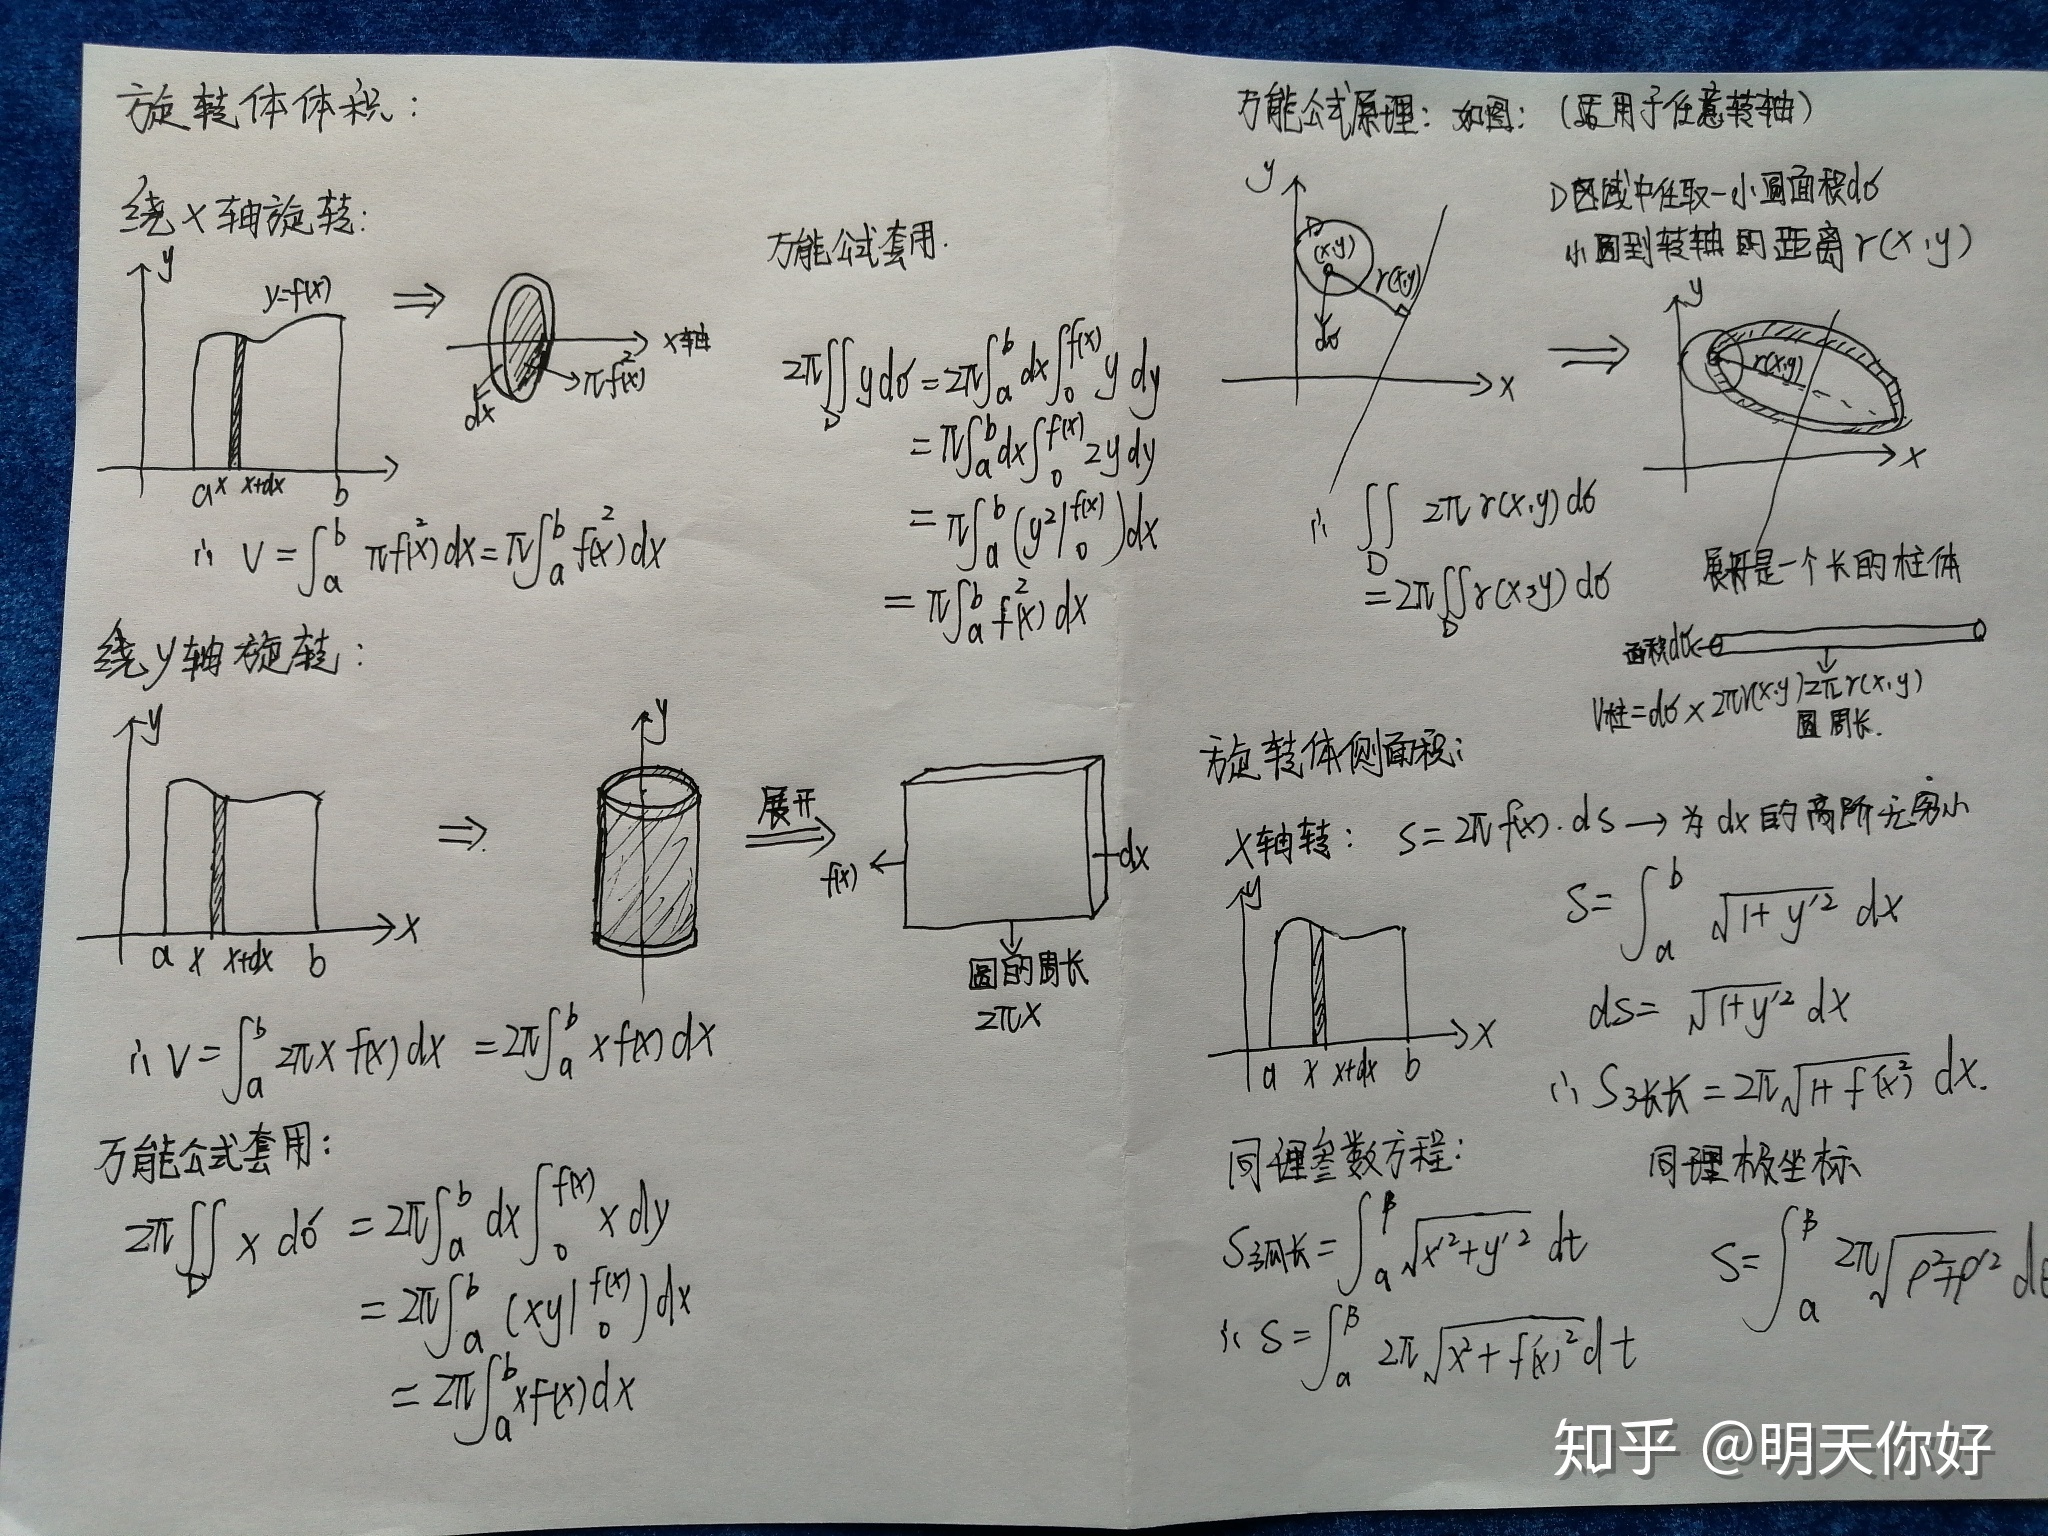 旋转体体积:
绕x轴旋转:
y
y=f(x)
⇒
x轴
πf²(x)
dx
a x x+dx b
∴ V=∫_a^b πf²(x)dx=π∫_a^b f²(x)dx
万能公式套用.
2π∬_D ydσ=2π∫_a^b dx∫_0^{f(x)} y dy
=π∫_a^b dx∫_0^{f(x)} 2y dy
=π∫_a^b (y²|_0^{f(x)})dx
=π∫_a^b f²(x)dx
绕y轴旋转:
y
x
a x x+dx b
⇒
y
展开
f(x)
dx
圆的周长
2πx
∴ V=∫_a^b 2πx f(x)dx =2π∫_a^b x f(x)dx
万能公式套用:
2π∬_D x dσ =2π∫_a^b dx∫_0^{f(x)} x dy
=2π∫_a^b (xy|_0^{f(x)})dx
=2π∫_a^b xf(x)dx
万能公式原理: 如图: (适用于任意转轴)
D区域中任取一小圆面积dσ
小圆到转轴的距离r(x,y)
y
D
(x,y)
r(x,y)
dσ
x
⇒
y
r(x,y)
x
∴ ∬_D 2πr(x,y)dσ
=2π∬_D r(x,y)dσ
展开是一个长的柱体
面积dσ
2πr(x,y)
V柱=dσ×2πr(x,y)
圆周长.
旋转体侧面积:
x轴转: S=2πf(x)·ds→为dx的高阶无穷小
y
x
a x x+dx b
S=∫_a^b √(1+y'²) dx
ds=√(1+y'²) dx
∴ S弧长=2π√(1+f'(x)²) dx.
同理参数方程:
S弧长=∫_a^β √(x'²+y'²) dt
∴ S=∫_a^β 2π√(x²+f'(x)²)dt
同理极坐标
S=∫_a^β 2π√(ρ²+ρ'²) dθ
知乎 @明天你好